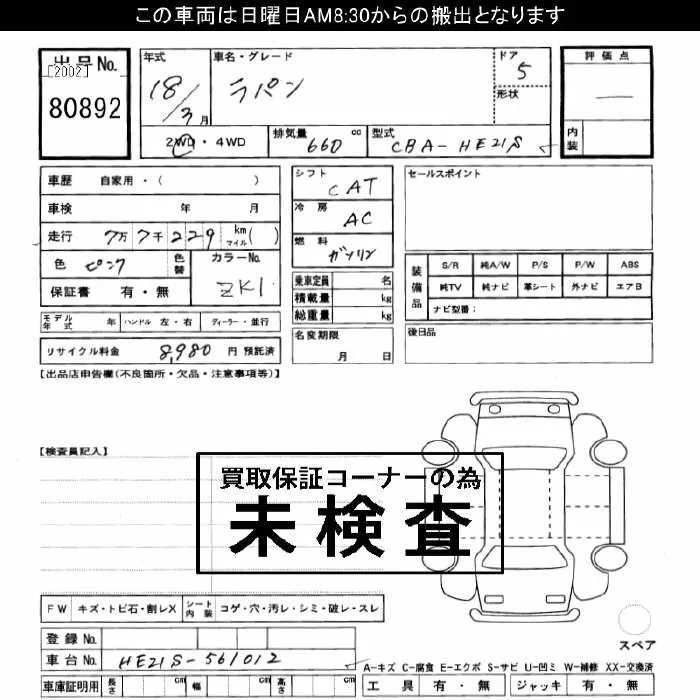 この車両は日曜日AM8:30からの搬出となります
出品No.
[2002]
80892
年式
18/3月
車名・グレード
ラパン
ドア
5
形状
評価点
―
内装
2WD・4WD
排気量 660 cc
型式 CBA-HE21S
車歴 自家用・( )
車検 年 月
走行 7万7千229 km マイル( )
色 ピンク
色替
カラーNo.
ZK1
保証書 有・無
モデル年式 年
ハンドル 左・右
ディーラー・並行
リサイクル料金 8,980 円 預託済
シフト
CAT
冷房
AC
燃料
ガソリン
乗車定員 名
積載量 kg
総重量 kg
名変期限
月 日
セールスポイント
装備品
S/R 純A/W P/S P/W ABS
純TV 純ナビ 革シート 外ナビ エアB
ナビ型番：
後日品
【出品店申告欄(不良箇所・欠品・注意事項等)】
【検査員記入】
買取保証コーナーの為
未検査
FW キズ・トビ石・割レX
シート内装 コゲ・穴・汚レ・シミ・破レ・スレ
登録No.
車台No. HE21S-561012
車庫証明用 長さ cm 幅 cm 高さ cm
スペア
A-キズ C-腐食 E-エクボ S-サビ U-凹ミ W-補修 XX-交換済
工具 有・無
ジャッキ 有・無